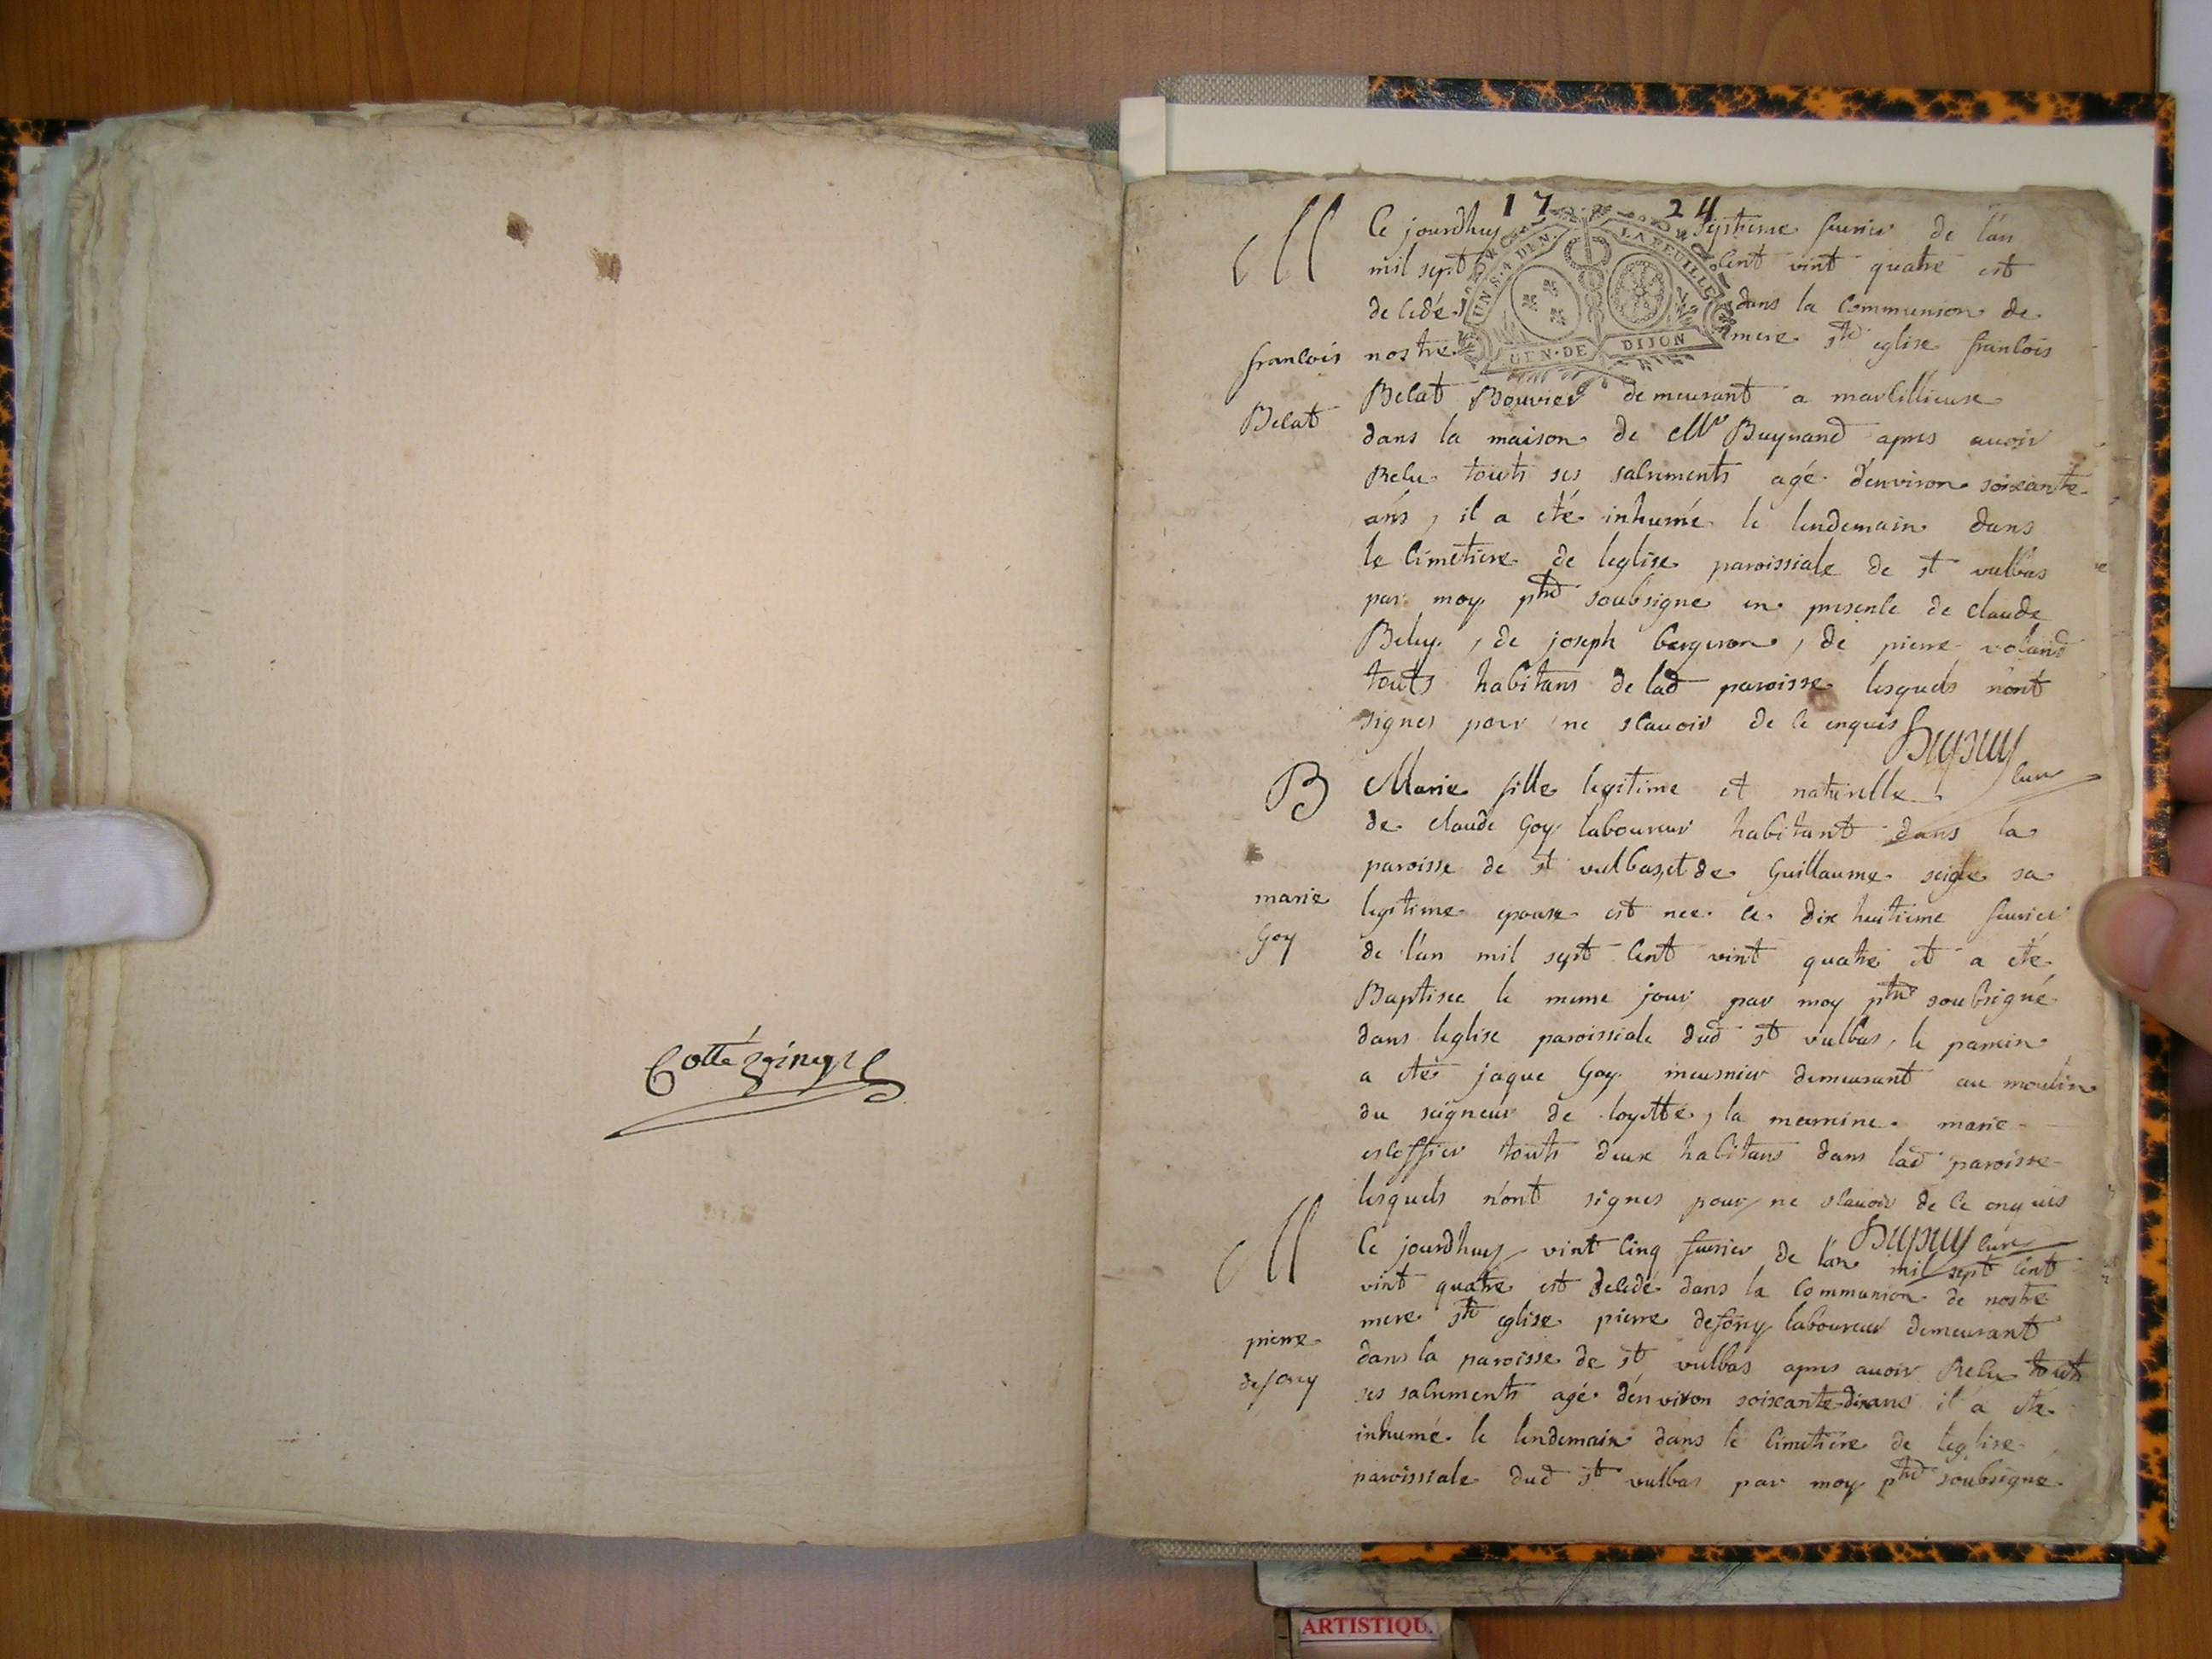 17 24
M Ce jourdhuy septieme fevrier de l'an
mil sept cent vint quatre est
decedé dans la communion de
nostre mere ste eglise francois
francois
Belat Bouvier demeurant a marcillieux
Belat
dans la maison de Mr Buynand apres avoir
Recu touts ses sacrements agé d'environ soixante
ans, il a eté inhumé le lendemain dans
le cimetiere de leglise paroissiale de st vulbas
par moy ptre soubsigne en presence de claude
Beluy, de joseph bergeron, de pierre voland
touts habitans de lad paroisse lesquels n'ont
signes pour ne scavoir de ce enquis Dupuy
curé
UN S. 4 DEN. LA FEUILLE
GEN. DE DIJON
B Marie fille legitime et naturelle
de claude Goy laboureur habitant dans la
paroisse de st vulbas, et de Guillaume seigle sa
marie
Goy
legitime epouse est nee le dix huitieme fevrier
de l'an mil sept cent vint quatre et a eté
Baptisee le meme jour par moy ptre soubsigné
dans leglise paroissiale dud st vulbas, le parrein
a eté jaque Goy meusnier demeurant au moulin
du seigneur de loyette, la marreine marie
escoffier touts deux habitans dans lad paroisse
lesquels n'ont signes pour ne scavoir de ce enquis
Dupuy curé
M Ce jourdhuy vint cinq fevrier de l'an mil sept cent
vint quatre est decedé dans la communion de nostre
mere ste eglise pierre defory laboureur demeurant
pierre
defory
dans la paroisse de st vulbas apres avoir Recu touts
ses sacrements agé d'environ soixante dix ans il a eté
inhumé le lendemain dans le cimetiere de leglise
paroissiale dud st vulbas par moy ptre soubsigné
ARTISTIQU